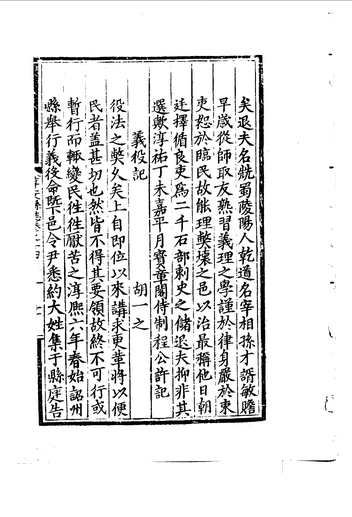 矣退夫名兟蜀陵陽人乾道名宰相孫才諝敏贍
早歲從師取友熟習義理之學謹於律身嚴於束
吏恕於臨民故能理弊壞之邑以治最稱他日朝
廷擇循良吏為二千石部刺史之儲退夫抑非其
選歟淳祐丁未嘉平月寶章閣侍制程公許記
義役記 胡一之
役法之獘久矣上自即位以來講求更革將以便
民者盖甚切也然皆不得其要領故終不可行或
暫行而輙變民徃徃厭苦之淳熙六年春始詔州
縣舉行義役命曁邑令尹悉約大姓集于縣庭告